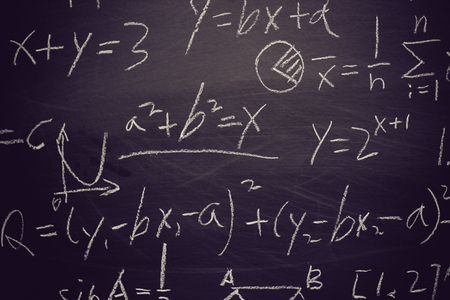 y=bx+a
x+y=3
x̄=1/n n∑i=1
a²+b²=x
=-C
y=2^(x+1)
Q=(y₁-bx₁-a)²+(y₂-bx₂-a)
A=1
A B
[1,2]